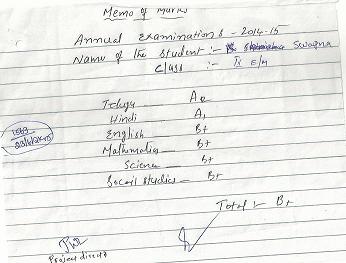 Memo of Marks
Annual Examinations - 2014-15
Name of the student :- Swapna
Class :- E/M
Telugu A2
Hindi A1
English B+
Mathematics B+
Science B+
Socail studies B+
Total :- B+
Project direct